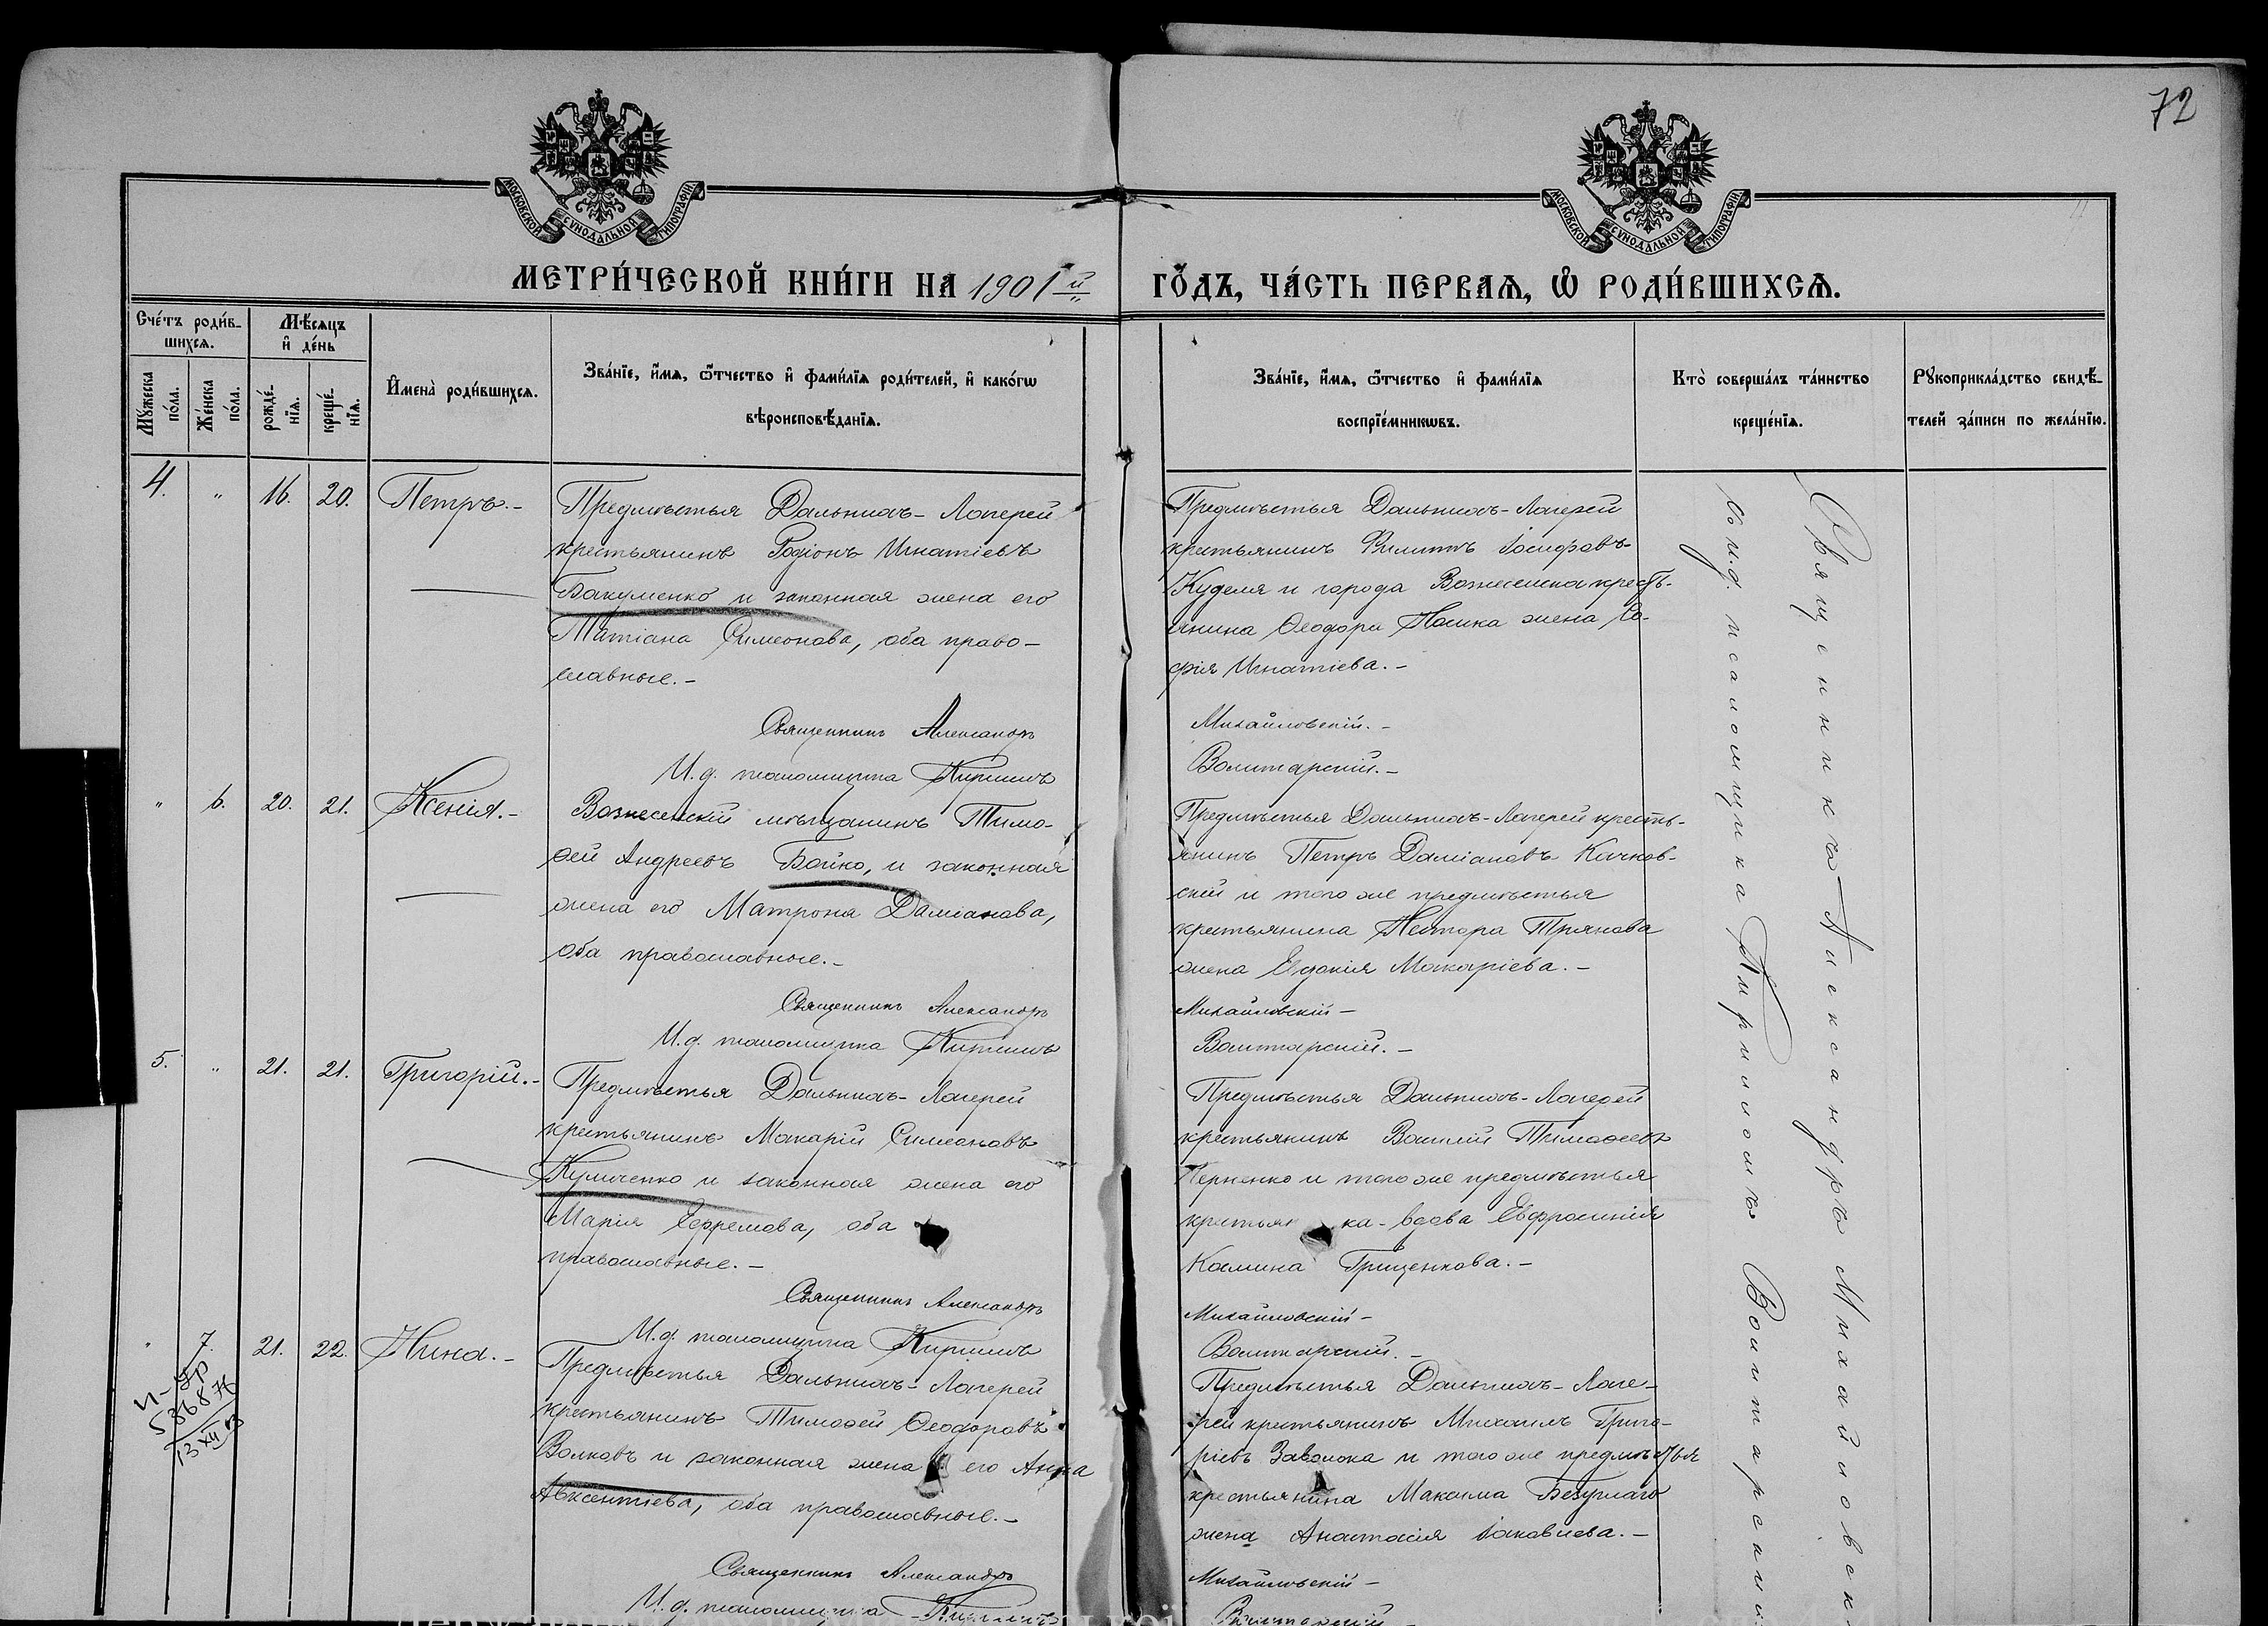 72
МОСКОВСКОЙ СѴНОДАЛЬНОЙ ТИПОГРАФІИ
МОСКОВСКОЙ СѴНОДАЛЬНОЙ ТИПОГРАФІИ
МЕТРИ́ЧЕСКОЙ КНИ́ГИ НА 1901й ГО́ДЪ, ЧА́СТЬ ПЕРВАѦ, Ѡ҆ РОДИ́ВШИХСѦ.
Сче́тъ роди́в-
шихсѧ.
Мѣ́сѧцъ
и҆ де́нь
Мꙋ́жеска
по́ла.
Же́нска
по́ла.
рожде́-
нїѧ.
креще́-
нїѧ.
И҆мена̀ роди́вшихсѧ.
Зва́нїе, и҆́мѧ, ѻ҆́тчество и҆ фами́лїѧ роди́телей, и҆ како́гѡ
вѣроисповѣ́данїѧ.
Зва́нїе, и҆́мѧ, ѻ҆́тчество и҆ фами́лїѧ
воспрїе́мникѡвъ.
Кто̀ соверша́лъ та́инство
креще́нїѧ.
Рꙋкоприкла́дство свидѣ́-
телей за́писи по жела́нїю.
4. " 16. 20. Петръ.-
Предмѣстья Дальнихъ-Лагерей
крестьянинъ Родіонъ Игнатіевъ
Бакуменко и законная жена его
Татіана Симеонова, оба право-
славные.-
Священникъ Александръ
И.д. псаломщика Кириллъ
Предмѣстья Дальнихъ-Лагерей
крестьянинъ Филиппъ Іосифовъ-
Куделя и города Вознесенска кресть-
янина Ѳеодора жена Со-
фія Игнатіева.-
Михайловскій.-
Волитарскій.-
" 6. 20. 21. Ксенія.-
Вознесенскій мѣщанинъ Тимо-
ѳей Андреевъ Бойко, и законная
жена его Матрона Даміанова,
оба православные.-
Священникъ Александръ
И.д. псаломщика Кириллъ
Предмѣстья Дальнихъ-Лагерей кресть-
янинъ Петръ Даміановъ Качков-
скій и того же предмѣстья
крестьянина Нестора Трянова
жена Евдокія Макаріева.-
Михайловскій-
Волитарскій.-
5. " 21. 21. Григорій.-
Предмѣстья Дальнихъ-Лагерей
крестьянинъ Макарій Симеоновъ
Куличенко и законная жена его
Марія Ефремова, оба
православные.-
Священникъ Александръ
И.д. псаломщика Кириллъ
Предмѣстья Дальнихъ-Лагерей
крестьянинъ Василій Тимоѳеевъ
и того же предмѣстья
крестьян ка-вдова Евфросинія
Калина Грищенкова.-
Михайловскій-
Волитарскій.-
" 7. 21. 22. Нина.-
Предмѣстья Дальнихъ-Лагерей
крестьянинъ Тимоѳей Ѳеодоровъ
Волковъ и законная жена его Анна
Авксентіева, оба православные.-
Священникъ Александръ
И.д. псаломщика Кириллъ
Предмѣстья Дальнихъ-Лаге-
рей крестьянинъ Михаилъ Григо-
ріевъ Заволока и того же предмѣстья
крестьянина Максима Безуглаго
жена Анастасія Іаковлева.-
Михайловскій-
Волитарскій
13 XII
Священникъ Александръ Михайловск
Со и.д. псаломщика Кирилломъ Волитарским